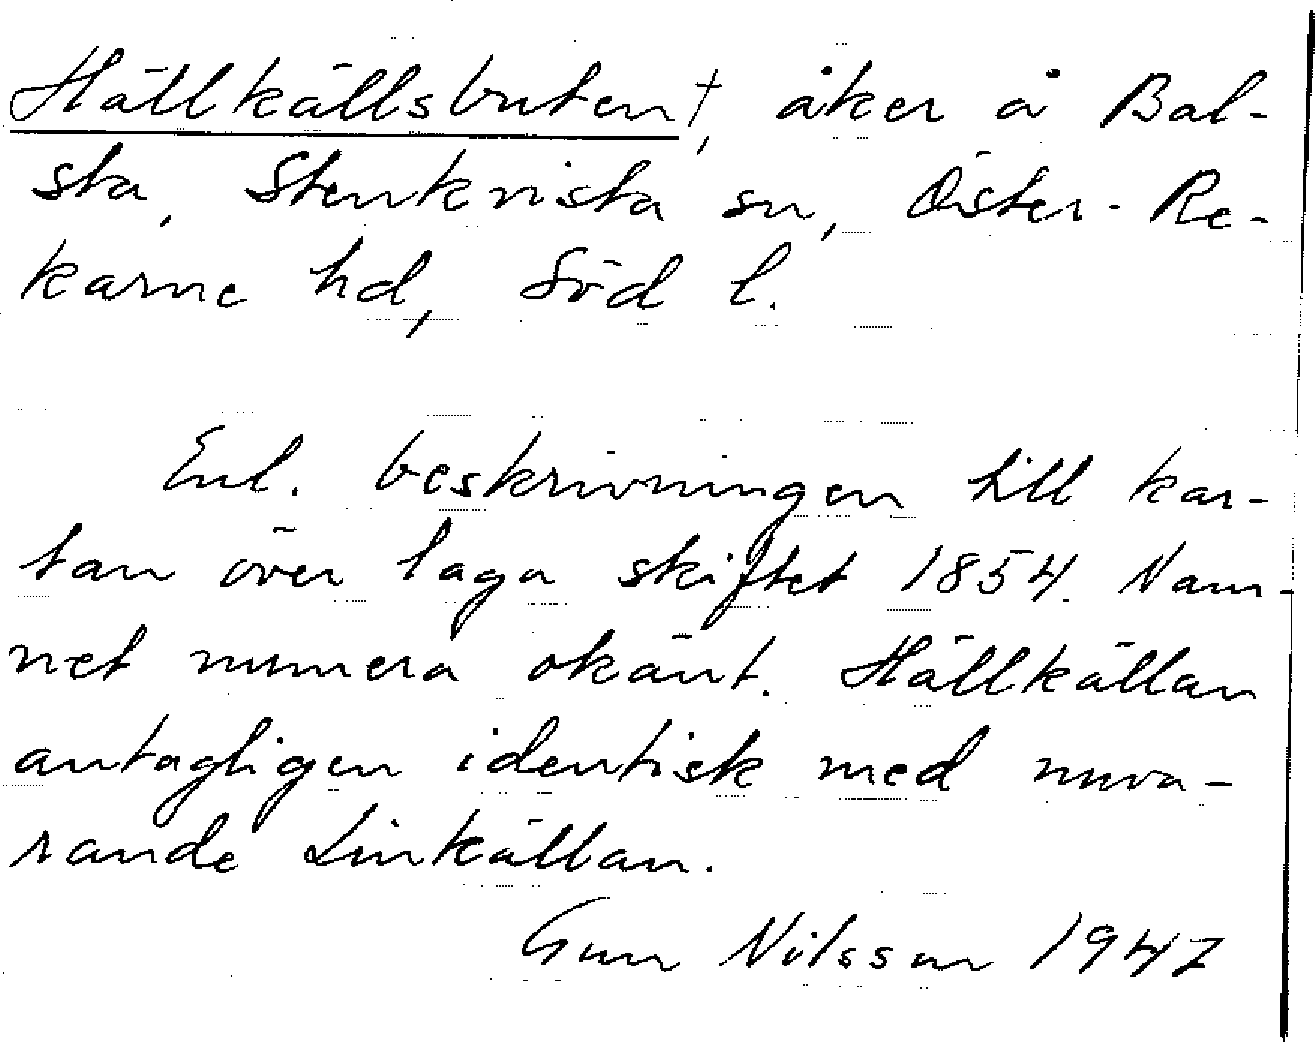 Hällkällsbiten†, åker å Bal-
sta, Stenkvista sn, Öster-Re-
karne hd, Söd l.
Enl. beskrivningen till kar-
tan över laga skiftet 1854. Nam-
net numera okänt. Hällkällan
antagligen identisk med nuva-
rande Linkällan.
Gun Nilsson 1947